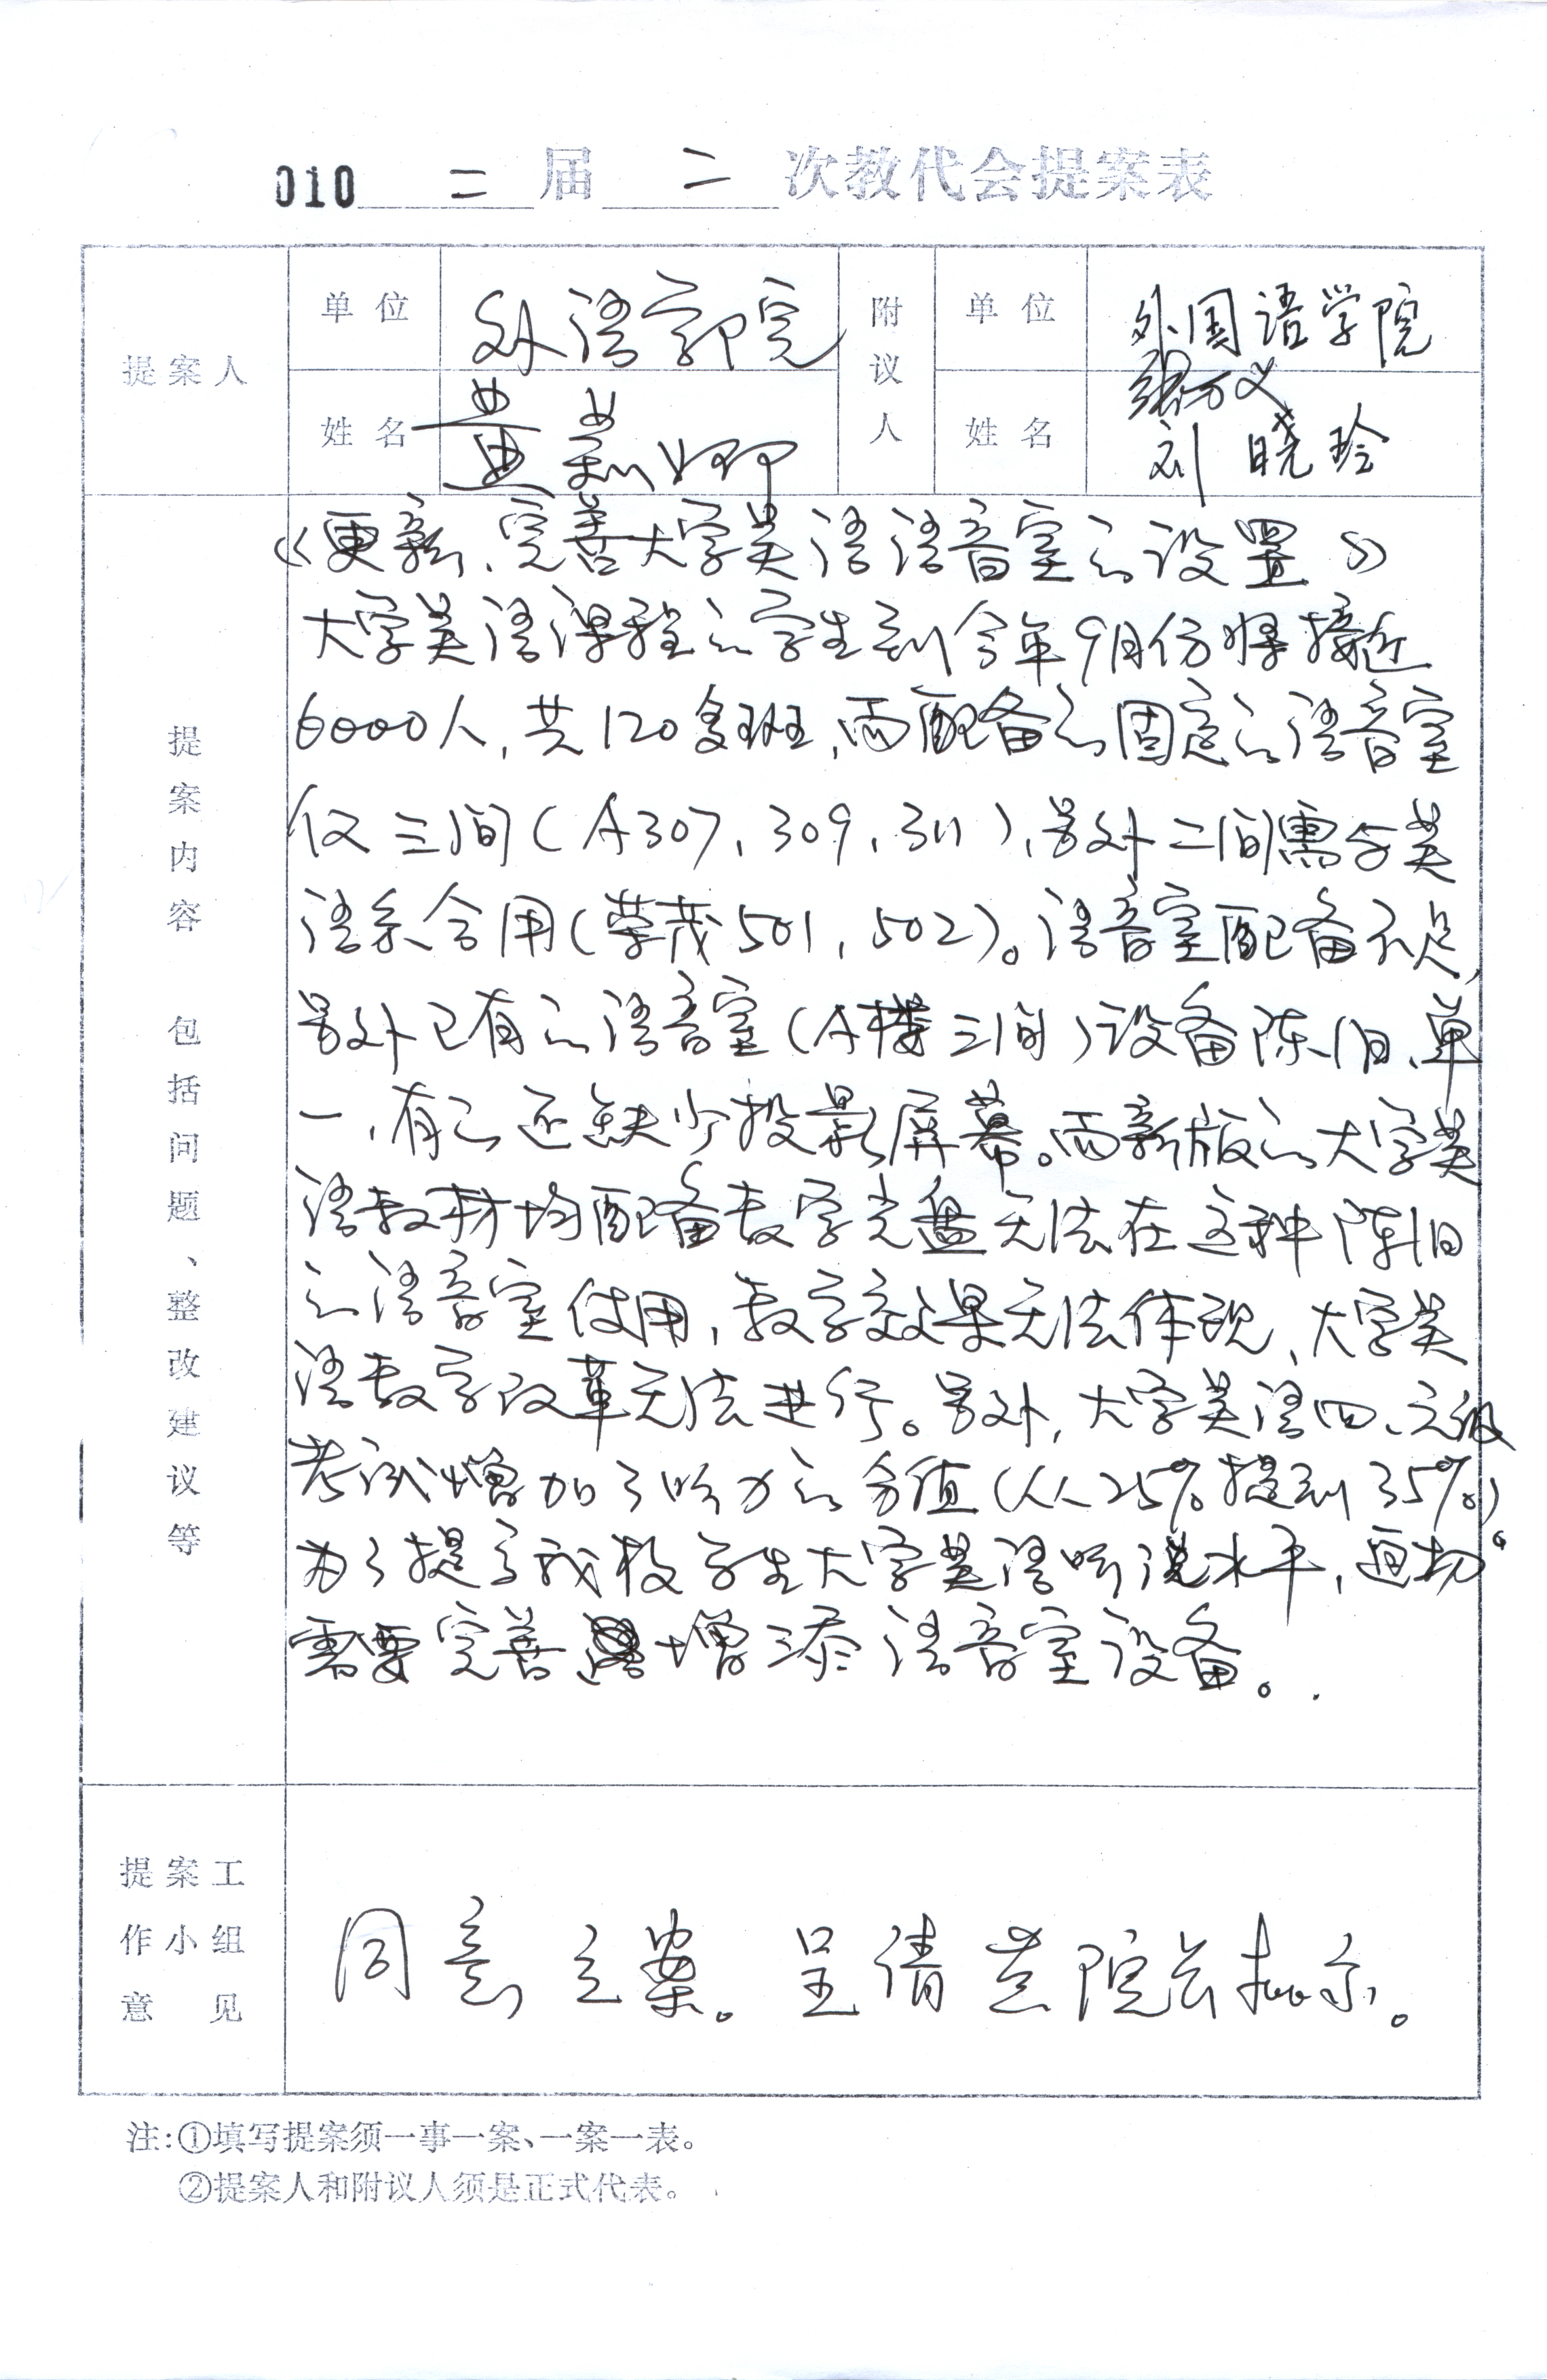 010 二 届 二 次教代会提案表
提案人 单位 外语学院 附议人 单位 外国语学院
姓名 黄 娜 姓名 张万义
刘晓玲
提案内容 包括问题、整改建议等
《更新、完善大学英语语音室的设置》
大学英语课程的学生到今年9月份将接近
6000人，共120多班，而配备的固定的语音室
仅三间（A307、309、311），另外二间需与英
语系合用（荣茂501，502）。语音室配备不足，
另外已有的语音室（A楼三间）设备陈旧、单
一，有的还缺少投影屏幕。而新版的大学英
语教材均配备教学光盘无法在这种陈旧
的语音室使用，教学效果无法体现、大学英
语教学改革无法进行。另外，大学英语四、六级
考试增加了听力的分值（从25%提到35%）。
为了提高我校学生大学英语听说水平，迫切
需要完善增添语音室设备。
提案工作小组意见
同意立案。呈倩芸院长批示。
注：①填写提案须一事一案、一案一表。
②提案人和附议人须是正式代表。